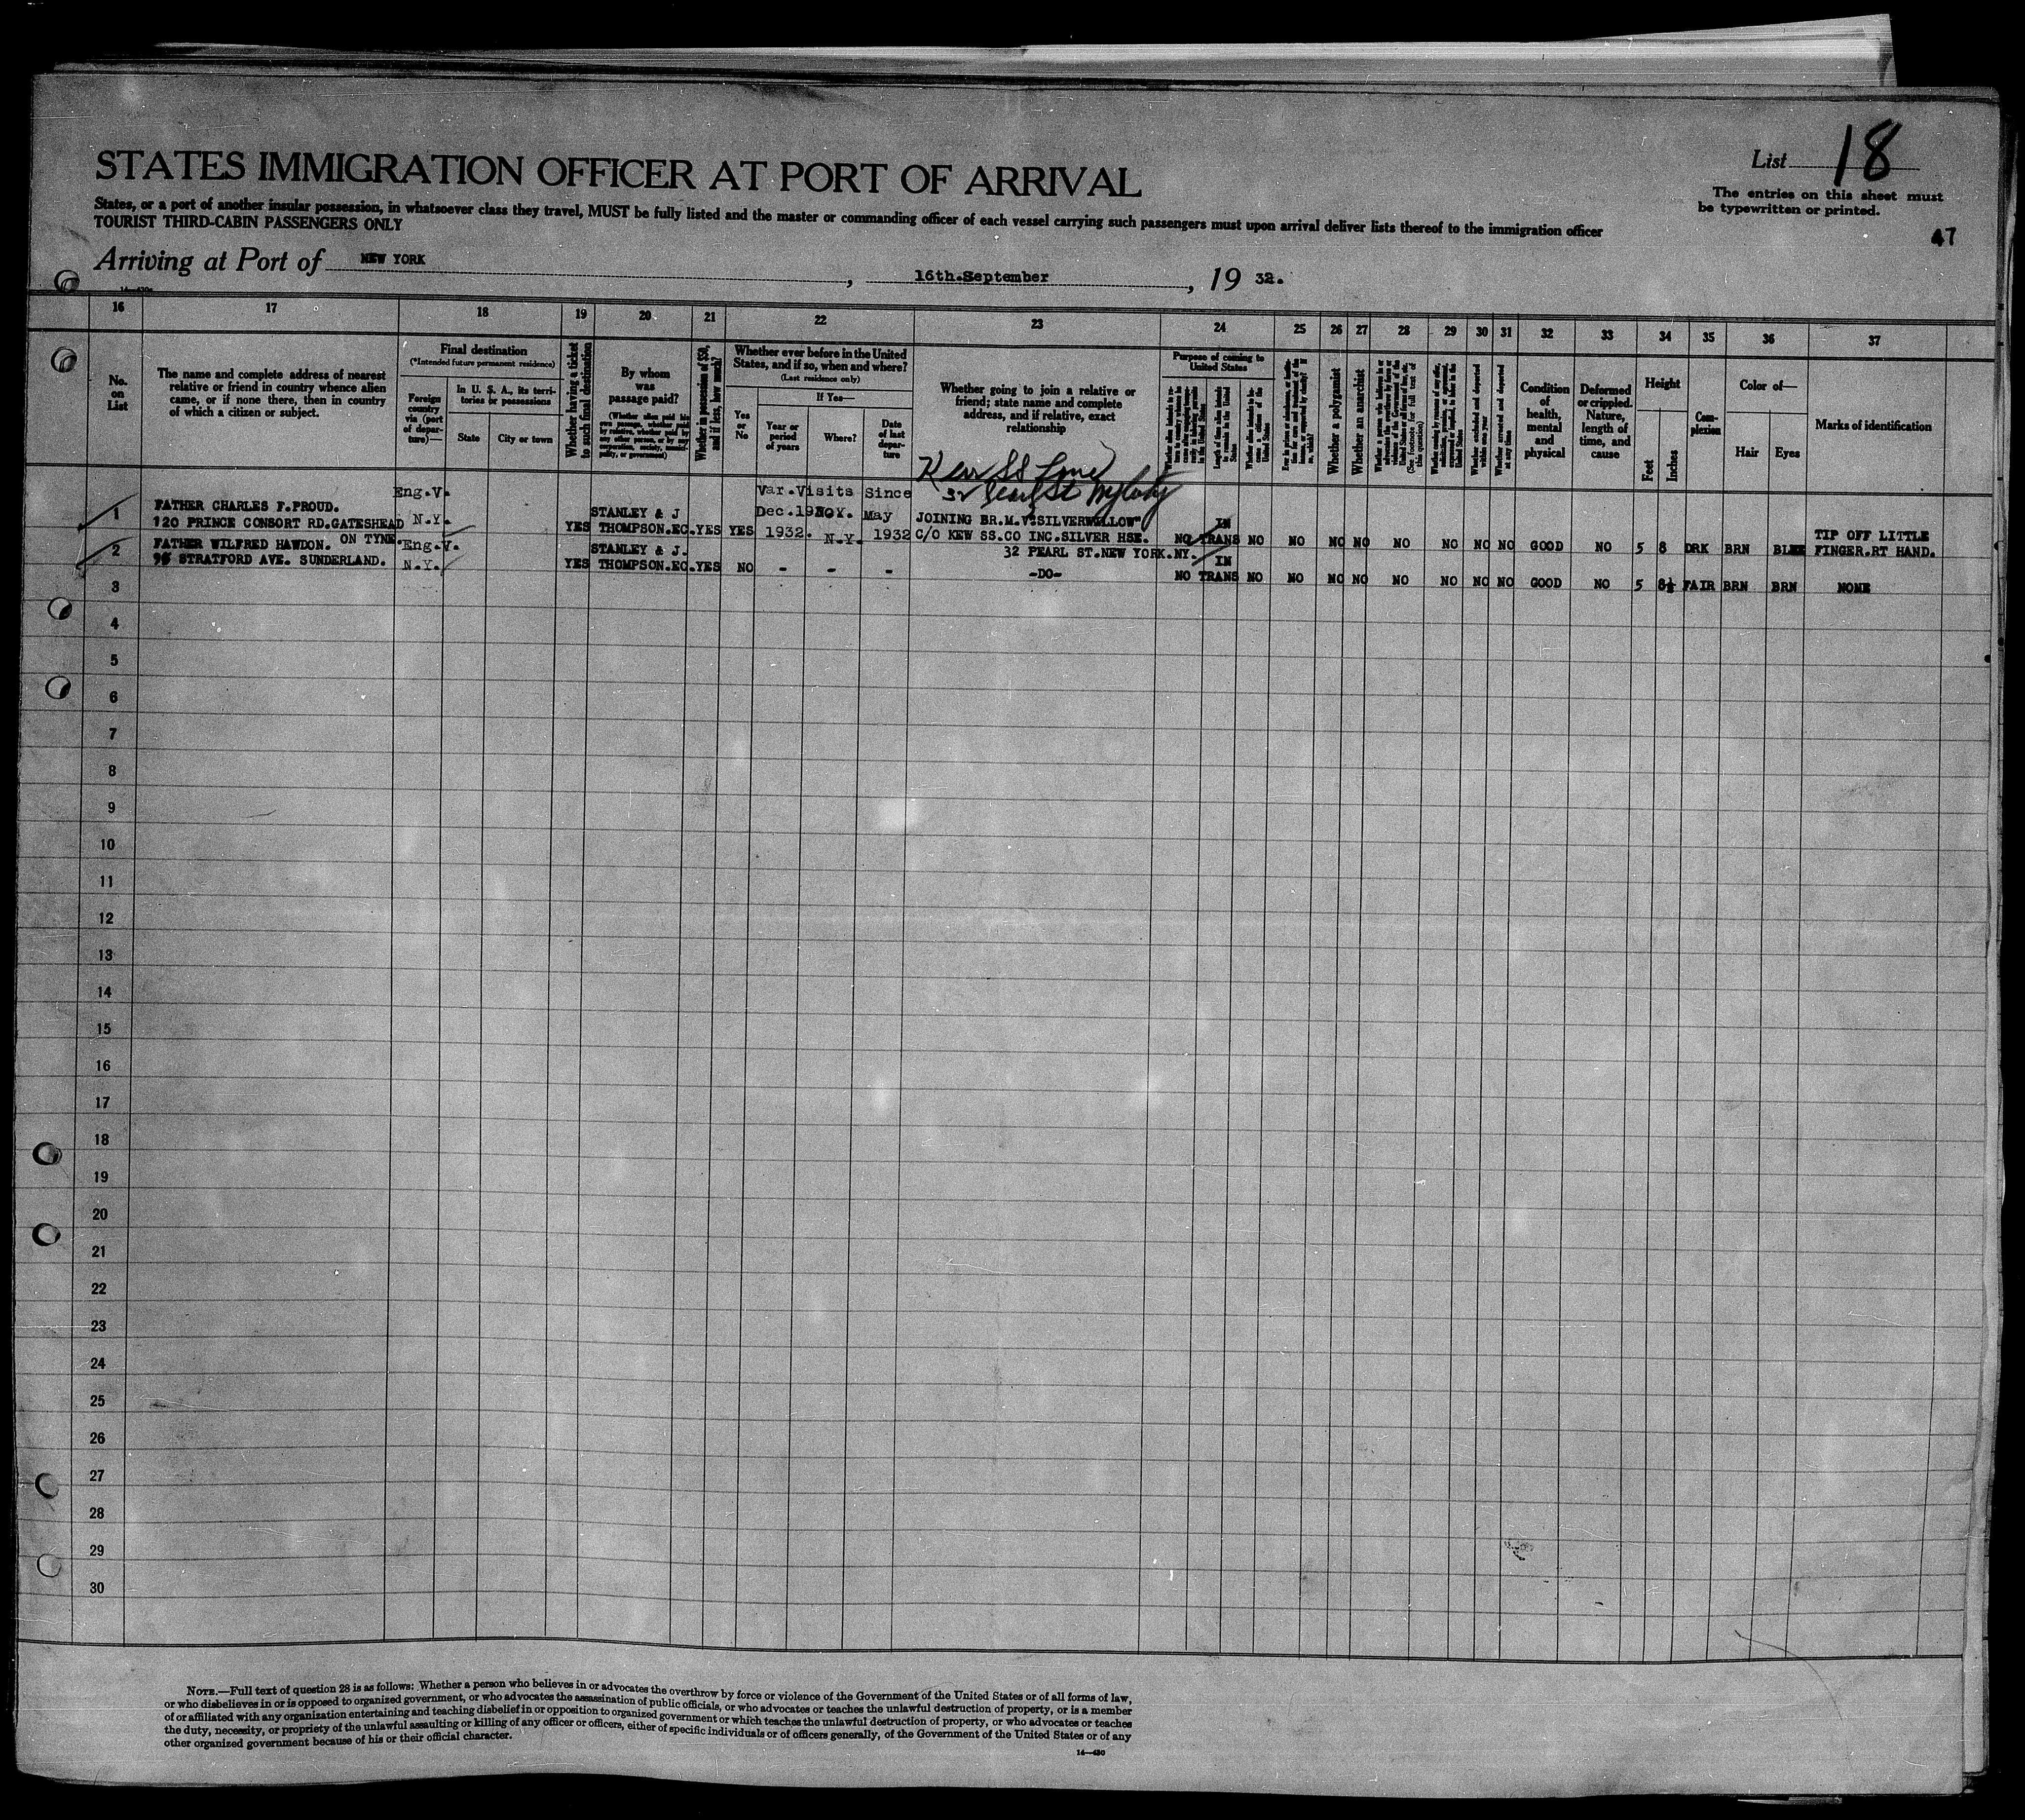 List 18
STATES IMMIGRATION OFFICER AT PORT OF ARRIVAL
The entries on this sheet must
be typewritten or printed.
States, or a port of another insular possession, in whatsoever class they travel, MUST be fully listed and the master or commanding officer of each vessel carrying such passengers must upon arrival deliver lists thereof to the immigration officer
TOURIST THIRD-CABIN PASSENGERS ONLY
47
Arriving at Port of NEW YORK, 16th.September, 19 32.
16 17 18 19 20 21 22 23 24 25 26 27 28 29 30 31 32 33 34 35 36 37
No. on List
The name and complete address of nearest
relative or friend in country whence alien
came, or if none there, then in country
of which a citizen or subject.
Final destination
(*Intended future permanent residence)
Foreign country via (port of departure)—
In U. S. A., its territories or possessions
State
City or town
Whether having a ticket to such final destination
By whom was passage paid?
(Whether alien paid his own passage, whether paid by relative, whether paid by any other person, or by any corporation, society, municipality, or government)
Whether in possession of $50, and if less, how much?
Whether ever before in the United
States, and if so, when and where?
(Last residence only)
Yes or No
If Yes—
Year or period of years
Where?
Date of last departure
Whether going to join a relative or
friend; state name and complete
address, and if relative, exact
relationship
Purpose of coming to United States
Length of time alien intends to remain in the United States
Whether alien intends to become a citizen of the United States
Whether a polygamist
Whether an anarchist
Whether excluded and deported within one year
Whether arrested and deported at any time
Condition of health, mental and physical
Deformed or crippled. Nature, length of time, and cause
Height
Feet
Inches
Complexion
Color of—
Hair
Eyes
Marks of identification
Kerr SS Line
32 Pearl St
1 FATHER CHARLES F.PROUD.
120 PRINCE CONSORT RD.GATESHEAD
ON TYNE.
Eng.V.
N.Y.
YES
STANLEY & J
THOMPSON.EC.
YES YES
Var.Visits Since
Dec.
1932.
N.Y.
May
1932
JOINING BR.M.V."SILVERWILLOW"
C/O KEW SS.CO INC.SILVER HSE.
32 PEARL ST.NEW YORK.NY.
NO IN TRANS NO NO NO NO NO NO NO NO GOOD NO 5 8 DRK BRN
TIP OFF LITTLE
FINGER.RT HAND.
2 FATHER WILFRED HAWDON.
STRATFORD AVE. SUNDERLAND.
Eng.V.
N.Y.
YES
STANLEY & J.
THOMPSON.EC.
YES NO - - -
-DO-
NO IN TRANS NO NO NO NO NO NO NO NO GOOD NO 5 8½ FAIR BRN BRN NONE
3
4
5
6
7
8
9
10
11
12
13
14
15
16
17
18
19
20
21
22
23
24
25
26
27
28
29
30
NOTE.—Full text of question 28 is as follows: Whether a person who believes in or advocates the overthrow by force or violence of the Government of the United States or of all forms of law,
or who disbelieves in or is opposed to organized government, or who advocates the assassination of public officials, or who advocates or teaches the unlawful destruction of property, or is a member
of or affiliated with any organization entertaining and teaching disbelief in or opposition to organized government or which teaches the unlawful destruction of property, or who advocates or teaches
the duty, necessity, or propriety of the unlawful assaulting or killing of any officer or officers, either of specific individuals or of officers generally, of the Government of the United States or of any
other organized government because of his or their official character.
14—430